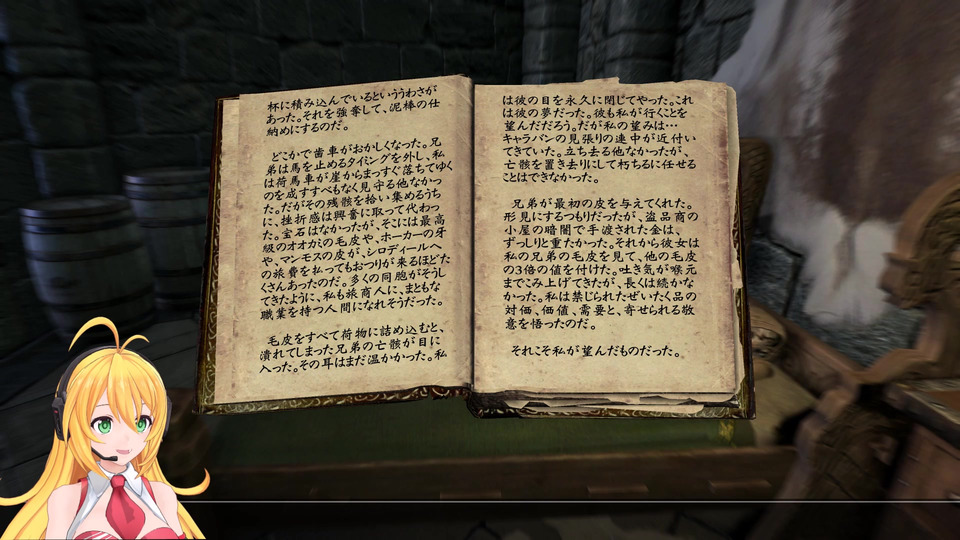 杯に積み込んでいるといううわさが
あった。それを強奪して、泥棒の仕
納めにするのだ。
どこかで歯車がおかしくなった。兄
弟は馬を止めるタイミングを外し、私
は荷馬車が崖からまっすぐ落ちてゆく
のを成すすべもなく見守る他なかっ
た。だがその残骸を拾い集めるうち
に、挫折感は興奮に取って代わっ
た。宝石はなかったが、そこには最高
級のオオカミの毛皮や、ホーカーの牙
や、マンモスの皮が、シロディールへ
の旅費を払ってもおつりが来るほどた
くさんあったのだ。多くの同胞がそうし
てきたように、私も旅商人に、まともな
職業を持つ人間になれそうだった。
毛皮をすべて荷物に詰め込むと、
潰れてしまった兄弟の亡骸が目に
入った。その耳はまだ温かかった。私
は彼の目を永久に閉じてやった。これ
は彼の夢だった。彼も私が行くことを
望んだだろう。だが私の望みは…
キャラバンの見張りの連中が近付い
てきていた。立ち去る他なかったが、
亡骸を置き去りにして朽ちるに任せる
ことはできなかった。
兄弟が最初の皮を与えてくれた。
形見にするつもりだったが、盗品商の
小屋の暗闇で手渡された金は、
ずっしりと重たかった。それから彼女は
私の兄弟の毛皮を見て、他の毛皮
の3倍の値を付けた。吐き気が喉元
までこみ上げてきたが、長くは続かな
かった。私は禁じられたぜいたく品の
対価、価値、需要と、寄せられる敬
意を悟ったのだ。
それこそ私が望んだものだった。